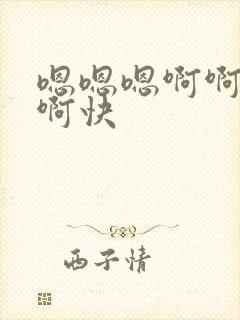 嗯嗯嗯啊啊
啊快
西子情